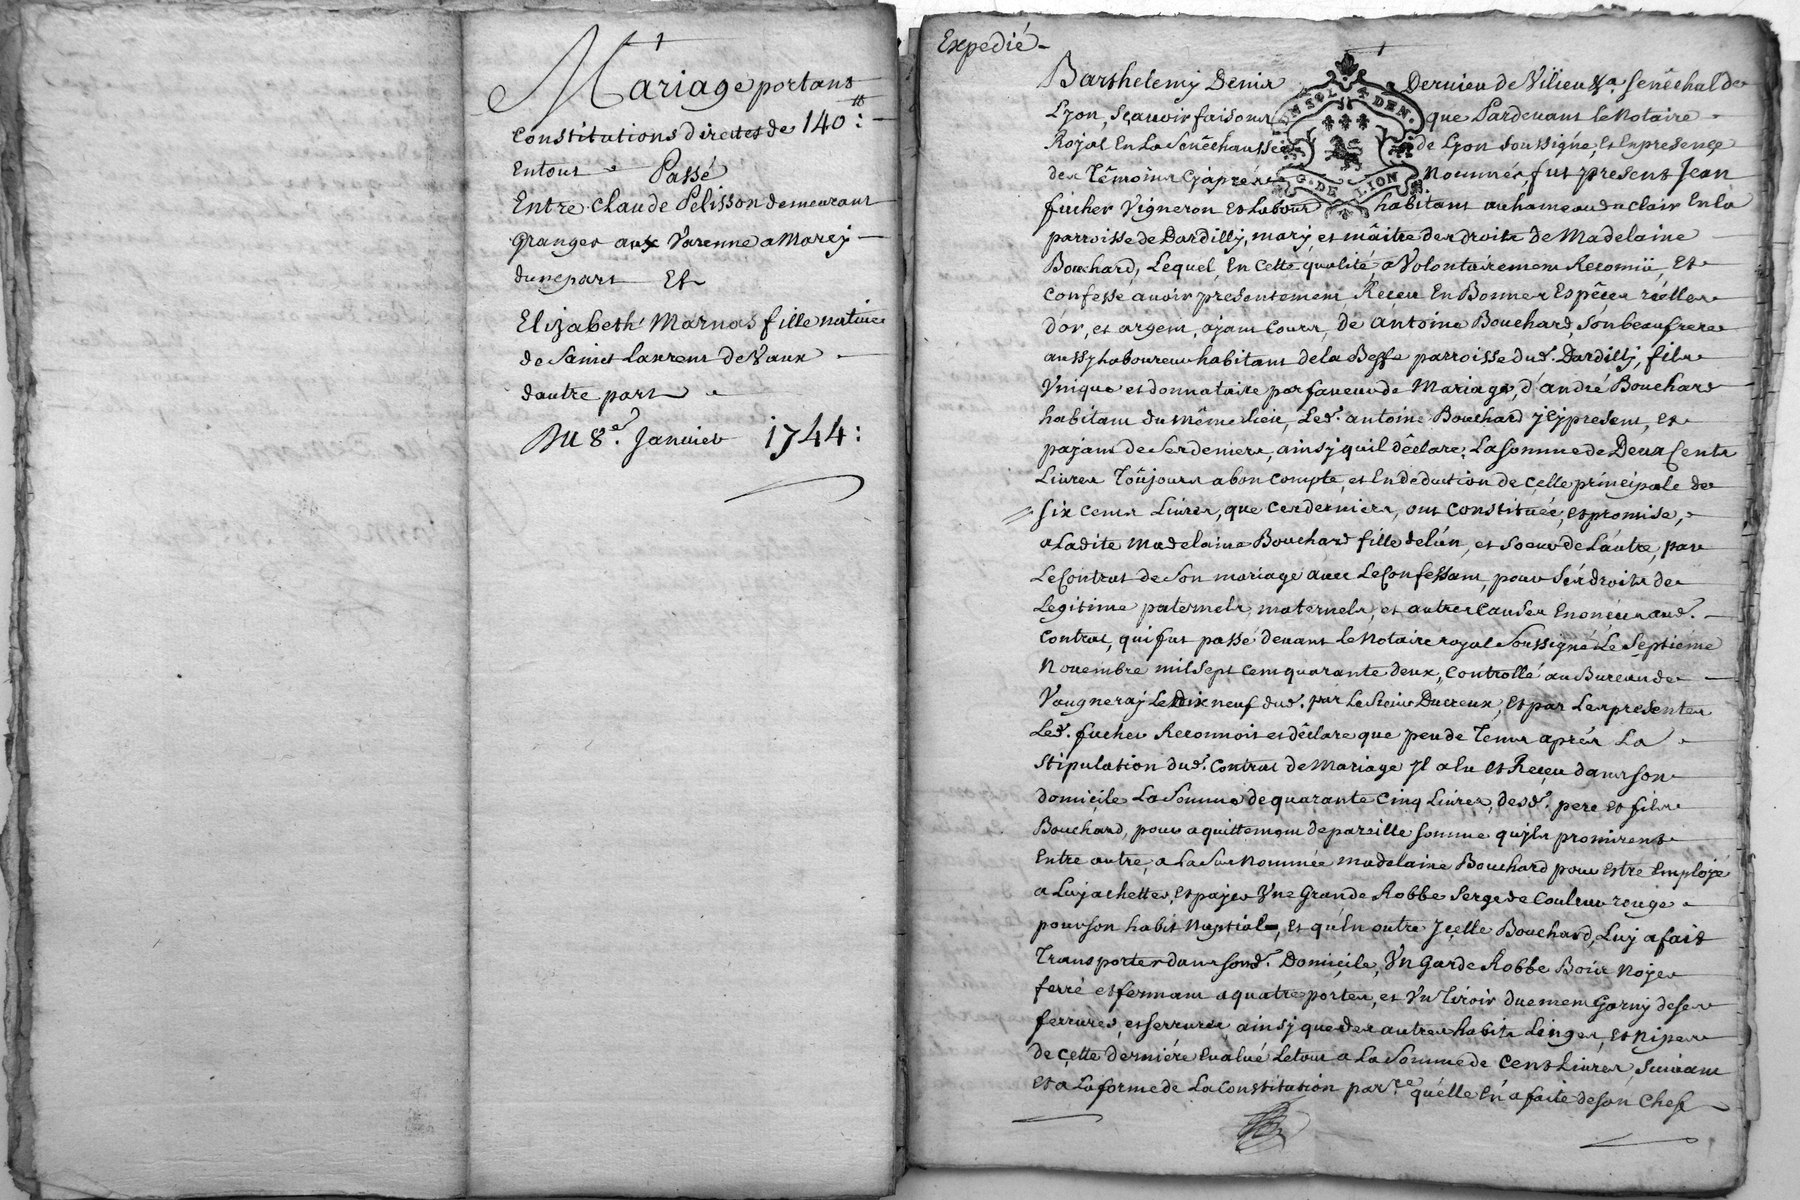 Mariage portant
constitutions directes de 140:ᵗᵗ
En tout Passé
Entre Claude Pelisson demeurant
Granger aux Varenne a Marcy
dune part Et
Elizabeth Marnas fille native
de Saint Laurent de Vaux
dautre part
Du 8ᵉ. Janvier 1744:
Expedié
Barthelemy Denis Dervieu de Vilieu &ᵃ. Senêchal de
Lyon, Sçavoir faisons que Pardevant le Notaire
Royal En La Senêchaussée de Lyon soussigné, et En presence
des Têmoins cy aprés Nommés, fut present Jean
fucher Vigneron et Labour habitant au hameau du clair En la
parroisse de Dardilly, mary, et mâitre des droits de Madelaine
Bouchard, Lequel, En cette qualité a Volontairement Reconnü, Et
confessé avoir presentement Receu En Bonnes Espêces réelles
d'or, et argent, ayant cours, de Antoine Bouchard Son beaufrere
aussy Laboureur habitant de la Beffe parroisse dud. Dardilly, fils
Vnique et donnataire par faveur de Mariage, d'andré Bouchard
habitant du même Lieu, Led. antoine Bouchard jcy present, et
payant de Ses deniers, ainsy quil dêclare, La Somme de Deux Cents
Livres Toûjours a bon compte, et En deduction de celle principale de
Six cents Livres, que ces derniers, ont constituée, et promise,
a Ladite Madelaine Bouchard fille de lún, et Soeur de Láutre, par
Le Contrat de Son mariage avec Le Confessant, pour Sés droits de
Legitime paternels, maternels, et autres causes Enoncées aud.
Contrat, qui fut passé devant le Notaire royal Soussigné Le Septieme
Novembre mil Sept cent quarante deux, Controllé au Bureau de
Vaugneray Le dix neuf dud. par Le Sieur Ducreux, Et par Les presentes
Led. fucher Reconnoit et dêclare que peu de Tems aprés La
Stipulation dud. Contrat de Mariage Jl a lu et Receu dans son
domicile La Somme de quarante Cinq Livres, desd. pere et fils
Bouchard, pour aquittement de pareille Somme quils promirent
Entre autre, a La Sus Nommée Madelaine Bouchard pour estre Employé
a Luy achetter, et payer Vne Grande Robbe Serge de Couleur rouge
pour son habit Nuptial, et qu'én outre Jcelle Bouchard, Luy a fait
Transporter dans Sond. Domicile, Vn Garde Robbe Boiis Noyer
ferré et fermant a quatre portes, et Vn Tiroir duement Garny de ses
ferrures, et serrures, ainsy que des autres habits Linges, et Nipes
de cette derniére Evalué Le tout a La Somme de Cent Livres, Suivant
Et a La forme de La Constitution par.ᵉʳᵉ qu'élle En a faite de son Chef
DENSOL 4 DEN.
G. DE LION